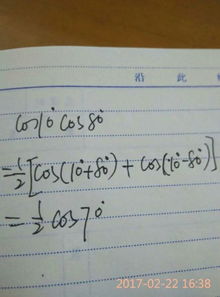 沿 此
cos10° cos80°
=½[cos(10°+80°)+cos(10°-80°)]
=½cos70°
2017-02-22 16:38